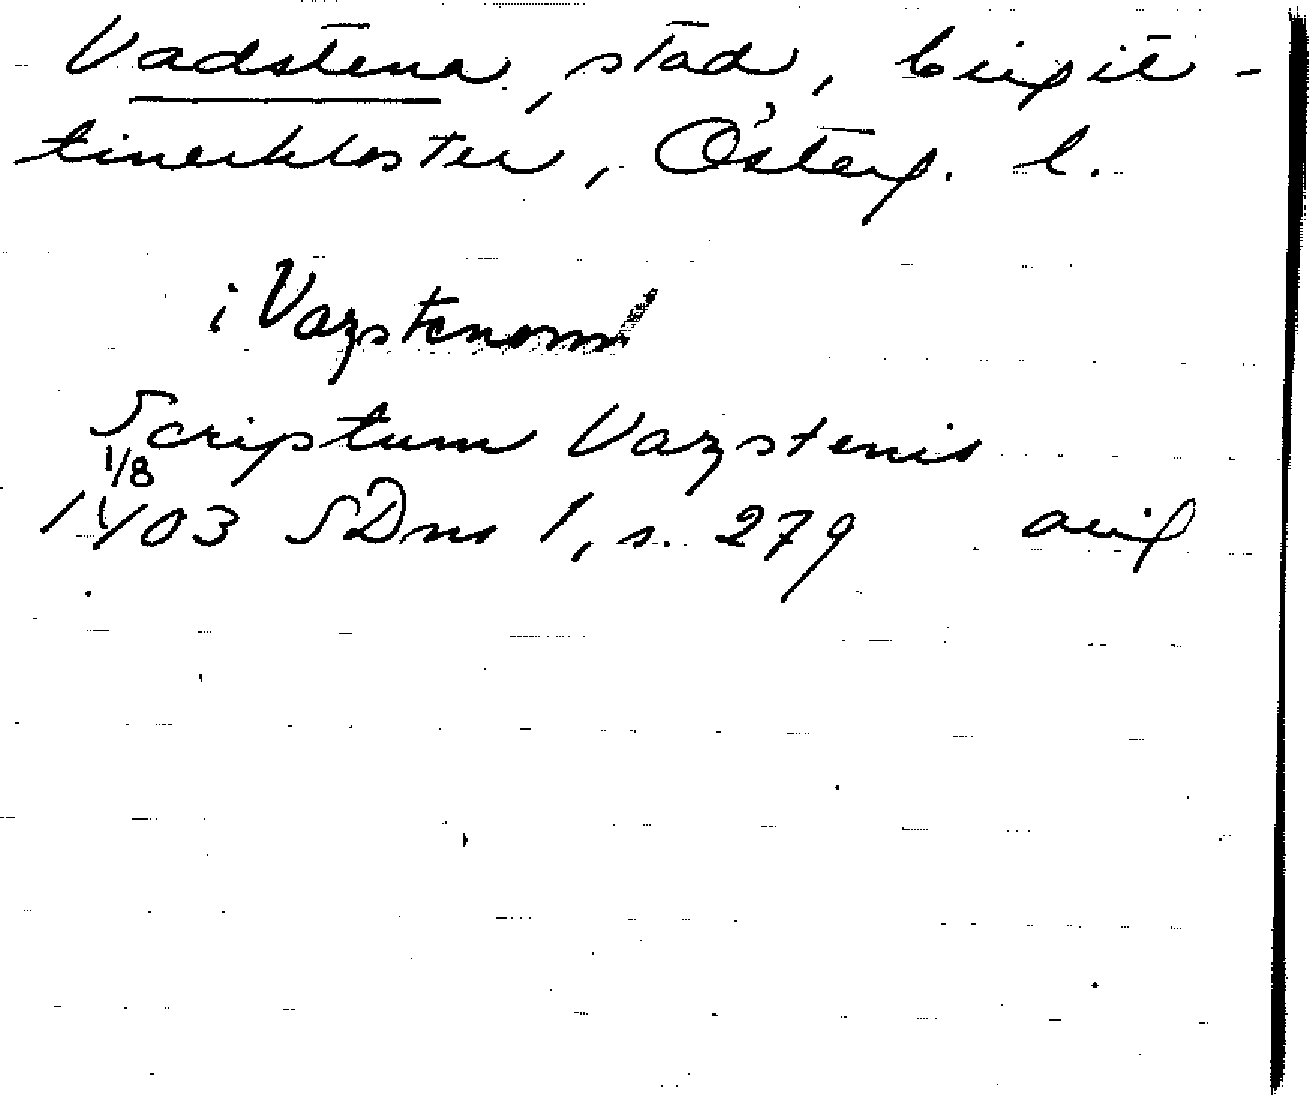 Vadstena, stad, birgit-
tinerkloster, Österg. l.
i Vazstenom
Scriptum Vazstenis
1/8
1403 SDns 1, s. 279 orig